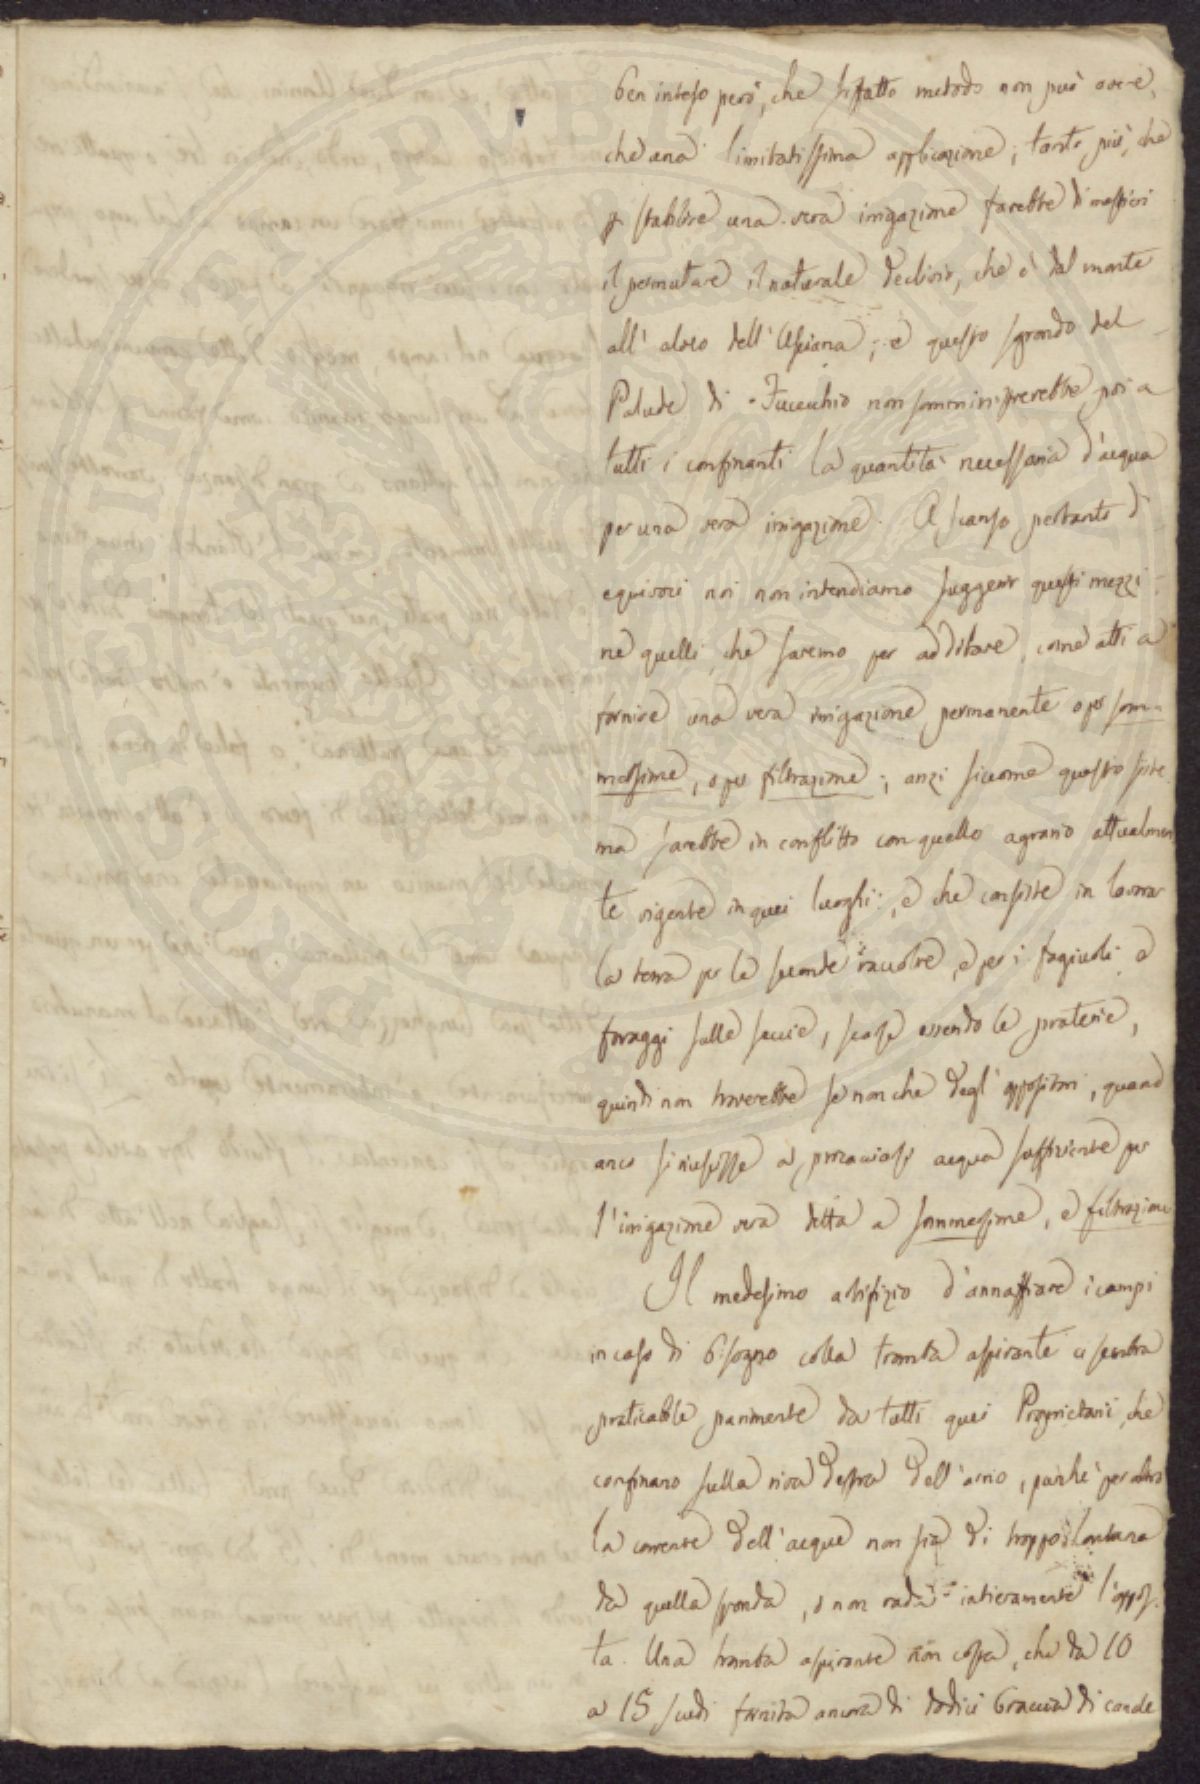 ben inteso però, che siffatto metodo non può avere,
che una limitatissima applicazione; tanto più, che
p stabilire una vera irrigazione sarebbe di mestieri
il permutare il naturale declivio, che è dal monte
all' alveo dell' Usciana; e questo sgrondo del
Padule di Fucecchio non somministrerebbe poi a
tutti i confinanti la quantità necessaria d'acqua
per una vera irrigazione. A scanso pertanto di
equivoci noi non intendiamo suggerir questi mezzi
ne quelli, che saremo per additare, come atti a
fornire una vera irrigazione permanente o per som-
messione, o per filtrazione; anzi siccome questo siste
ma sarebbe in conflitto con quello agrario attualmen
te vigente in quei luoghi, e che consiste in lavorar
la terra per le seconde raccolte, e per i fagiuoli e
foraggi sulle seccie, scarse essendo le praterie,
quindi non troverebbe se non che degl' oppositori, quand
anco si riuscisse a procacciarsi acqua sufficiente per
l'irrigazione vera detta a sommessione, e filtrazione
Il medesimo artifizio d'annaffiare i campi
in caso di bisogno colla tromba aspirante ci sembra
praticabile parimente da tutti quei Proprietarii, che
confinano sulla riva destra dell' arno, purchè per altro
la corrente dell' acque non sia di troppo lontana
da quella sponda, o non rada intieramente l'oppos
ta. Una tromba aspirante non costa, che da 10
a 15 scudi fornita ancora di dodici braccia di canale